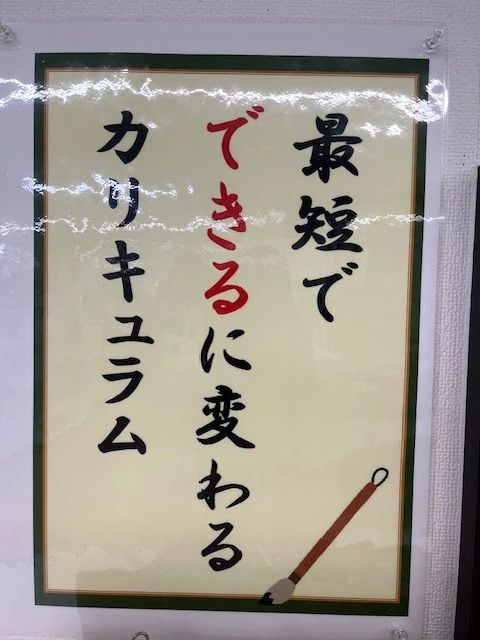 最短で
できるに変わる
カリキュラム